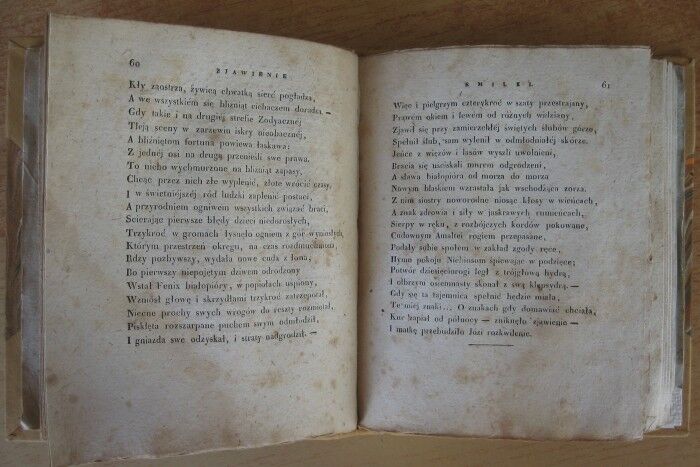 60
ZJAWIENIE
Kły zaostrza, żywicą chwatką sierć pogładza,
A we wszystkiem się bliźniąt ciebaczem doradza.—
Gdy takie i na drugiej strefie Zodyacznéj
Tleją sceny w zarzewin iskry nieobacznéj,
A bliźniętom fortuna powiewa łaskawa:
Z jednéj osi na drugą przenieśli swe prawa.
To nicho wychmorzone na bliźniąt zapasy,
Chcąc przez nich złe wyplenić, złote wrócić czasy,
I w świetniejszéj ród ludzki zaplenić postaci,
A przyrodniem ogniwem wszystkich związać braci,
Ścierając pierwsze błędy dzieci niedorosłych,
Trzykroć w gromach łysnęło ogniem z gór wyniosłych,
Którym przestrzeń okręgu, na czas rozdmuchniona,
Rdzy pozbywszy, wydała nowe cuda z łona,
Bo pierwszy niepojętym dziwem odrodzony
Wstał Fenix białopióry, w popiołach uspiony,
Wzniósł głowę i skrzydłami trzykroć zatrzepotał,
Niecne prochy swych wrogów do reszty rozmiotał,
Pisklęta rozszarpane puchem swym odmłodził,
I gniazda swe odzyskał, i straty nadgrodził.—
EMILKI.
61
Więc i pielgrzym czterykroć w szaty przestrajany,
Prawem okiem i lewem od różnych widziany,
Zjawił się przy zamierzchłéj świętych ślubów górze,
Spełnił ślub, sam wylenił w odmłodniałéj skórze.
Jeńce z więzów i lasów wyszli uwolnieni,
Bracia się uściskali morem odgrodzeni,
A sława białopióra od morza do morza
Nowym blaskiem wzrastała jak wschodząca zorza.
Z nim siostry noworodne niosąc kłosy w wieńcach,
A znak zdrowia i siły w jaskrawych rumieńcach,
Sierpy w ręku, z rozbójczych kordów pokowane,
Cudownym Amaltei rogiem przepasane,
Podały sobie społem w zakład zgody ręce,
Hymn pokoju Niebiosom śpiewając w podzięce;
Potwór dziesięciorogi legł z trójgłową hydrą,
I olbrzym osiemnasty skonał z swą klepsydrą.—
Gdy się ta tajemnica spełnić będzie miała,
Te miej znaki... O znakach gdy domawiać chciała,
Kur zapiał od północy — zniknęło zjawienie —
I matkę przebudziło Józi rozkwilenie.